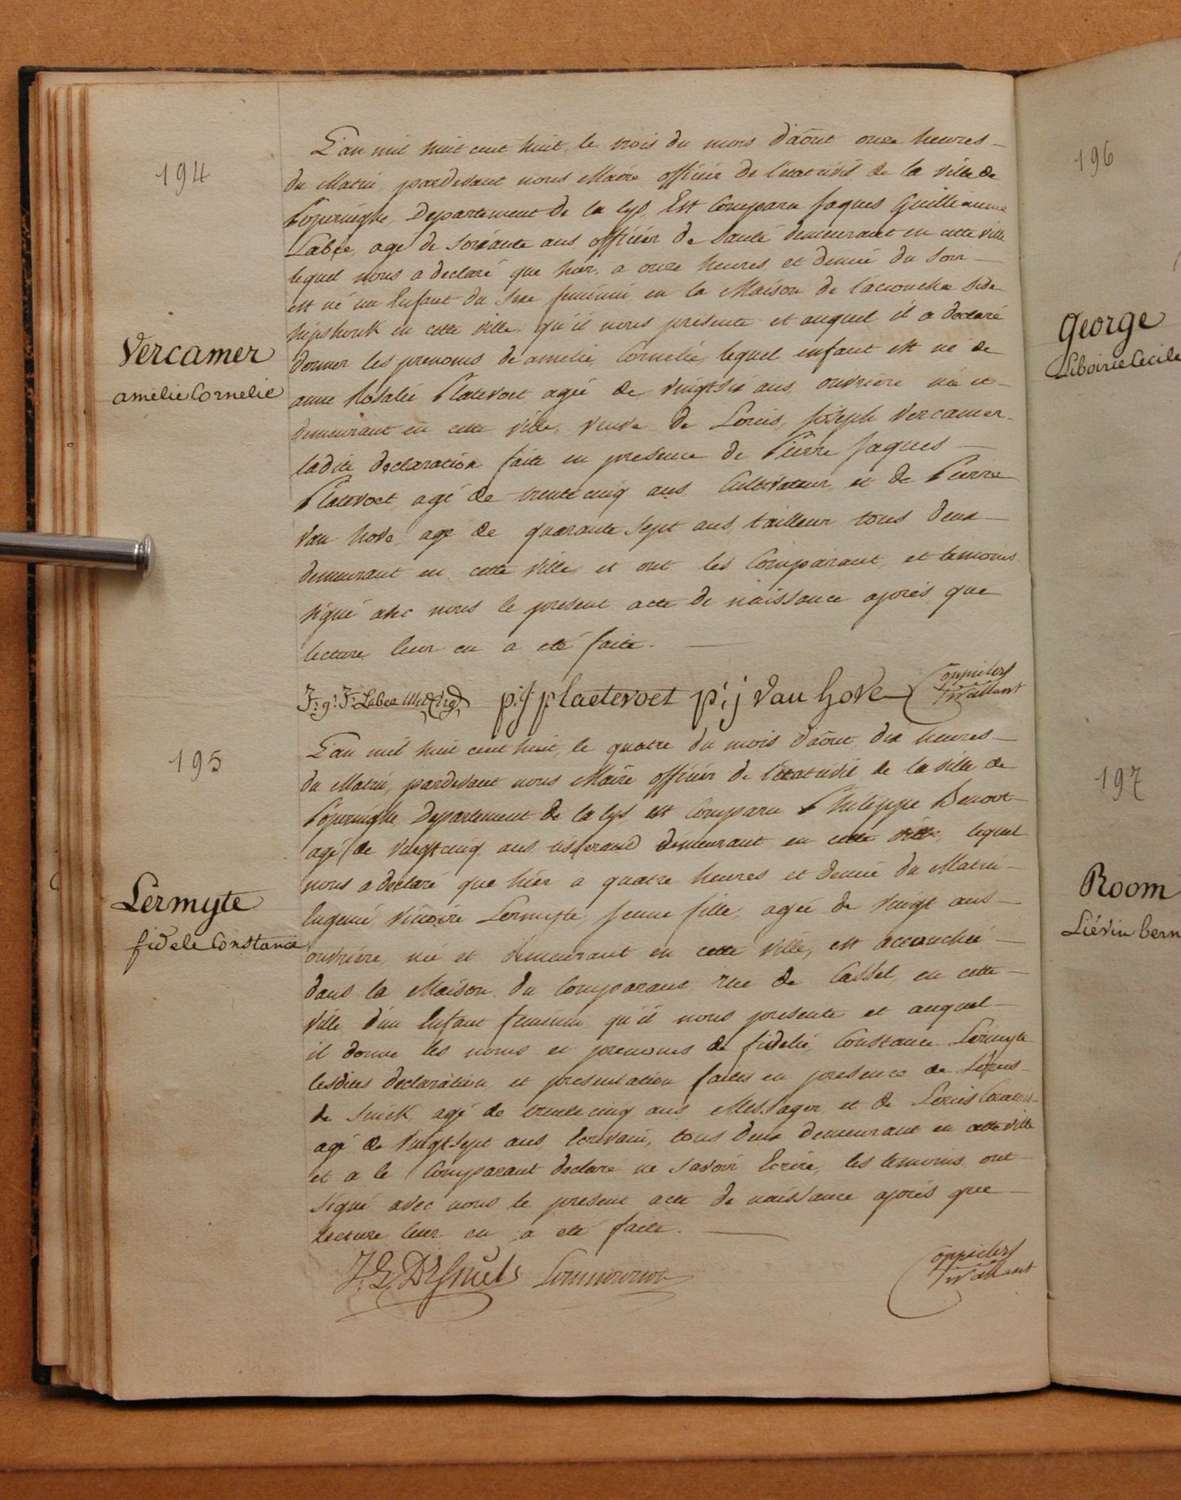 194
L'an mil huit cent huit, le trois du mois d'août onze heures
du Matin, pardevant nous Maire officier de l'etat civil de la ville de
Poperinghe, Departement de la Lys, Est Comparu Jaques Guilleaume
Labee, agé de soixante ans officier de santé demeurant en cette ville
lequel nous a declaré que hier, a onze heures et demie du soir
est né un Enfant du sexe feminin en la Maison de l'acouchée
en cette ville qu'il nous presente et auquel il a declaré
donner les prenoms de amelie, Cornelie, lequel enfant est né de
anne Rosalie Platevoet agée de vingt six ans, ouvriere née et
demeurant en cette ville, veuve de Louis, Joseph Vercamer
ladite declaration faite en presence de Pierre Jaques
Platevoet, agé de trente cinq ans Cultivateur, et de Pierre
Van hove agé de quarante sept ans, tailleur tous deux
demeurant en cette ville et ont les Comparant, et temoins
signé avec nous le present acte de naissance après que
lecture leur en a eté faite.
Vercamer
amelie Cornelie
J: g: F: Labee p:J plaetevoet p:j van hove
195
L'an mil huit cent huit, le quatre du mois d'août, dix heures
du Matin, pardevant nous Maire officier de l'etat civil de la ville de
Poperinghe Departement de la Lys est Comparu Philippe
agé de vingt cinq ans tisserand demeurant en cette ville, lequel
nous a declaré que hier a quatre heures et demie du Matin
Eugenie Victoire Lermyte jeune fille, agée de vingt ans
ouvriere, née et demeurant en cette ville, est accouchée
dans la Maison du Comparant rue de Cassel, en cette
ville d'un Enfant feminin qu'il nous presente et auquel
il donne les noms et prenoms de fidelie Constance Lermyte
lesdites declaration et presentation faites en presence de
agé de trente cinq ans Messager et de Louis
agé de vingt sept ans, Ecrivain, tous deux demeurant en cette ville
et a le Comparant declaré ne savoir Ecrire, les temoins ont
signé avec nous le present acte de naissance après que
lecture leur en a eté faite.
Lermyte
fidele Constance
196
George
Liboirie Cecile
197
Room
Liévin bern